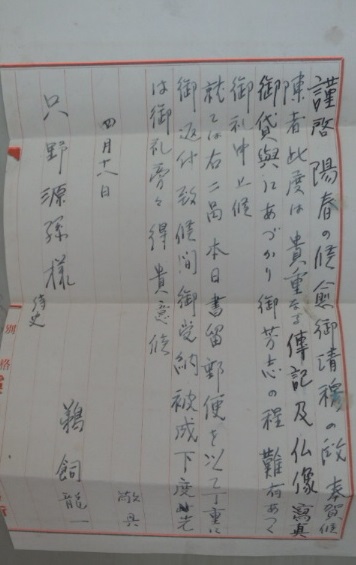 謹啓 陽春の候愈御清穆の段 奉賀候
陳者此度は貴重なる傳記及仏像寫真
御貸與にあづかり御芳志の程 難有あつく
御礼申上候
就ては右二品本日書留郵便を以て丁重に
御返付致候間御受納被成下度
は御礼旁々得貴意候
敬具
四月十八日
鵜飼龍一
只野源孫様
侍史
別
格